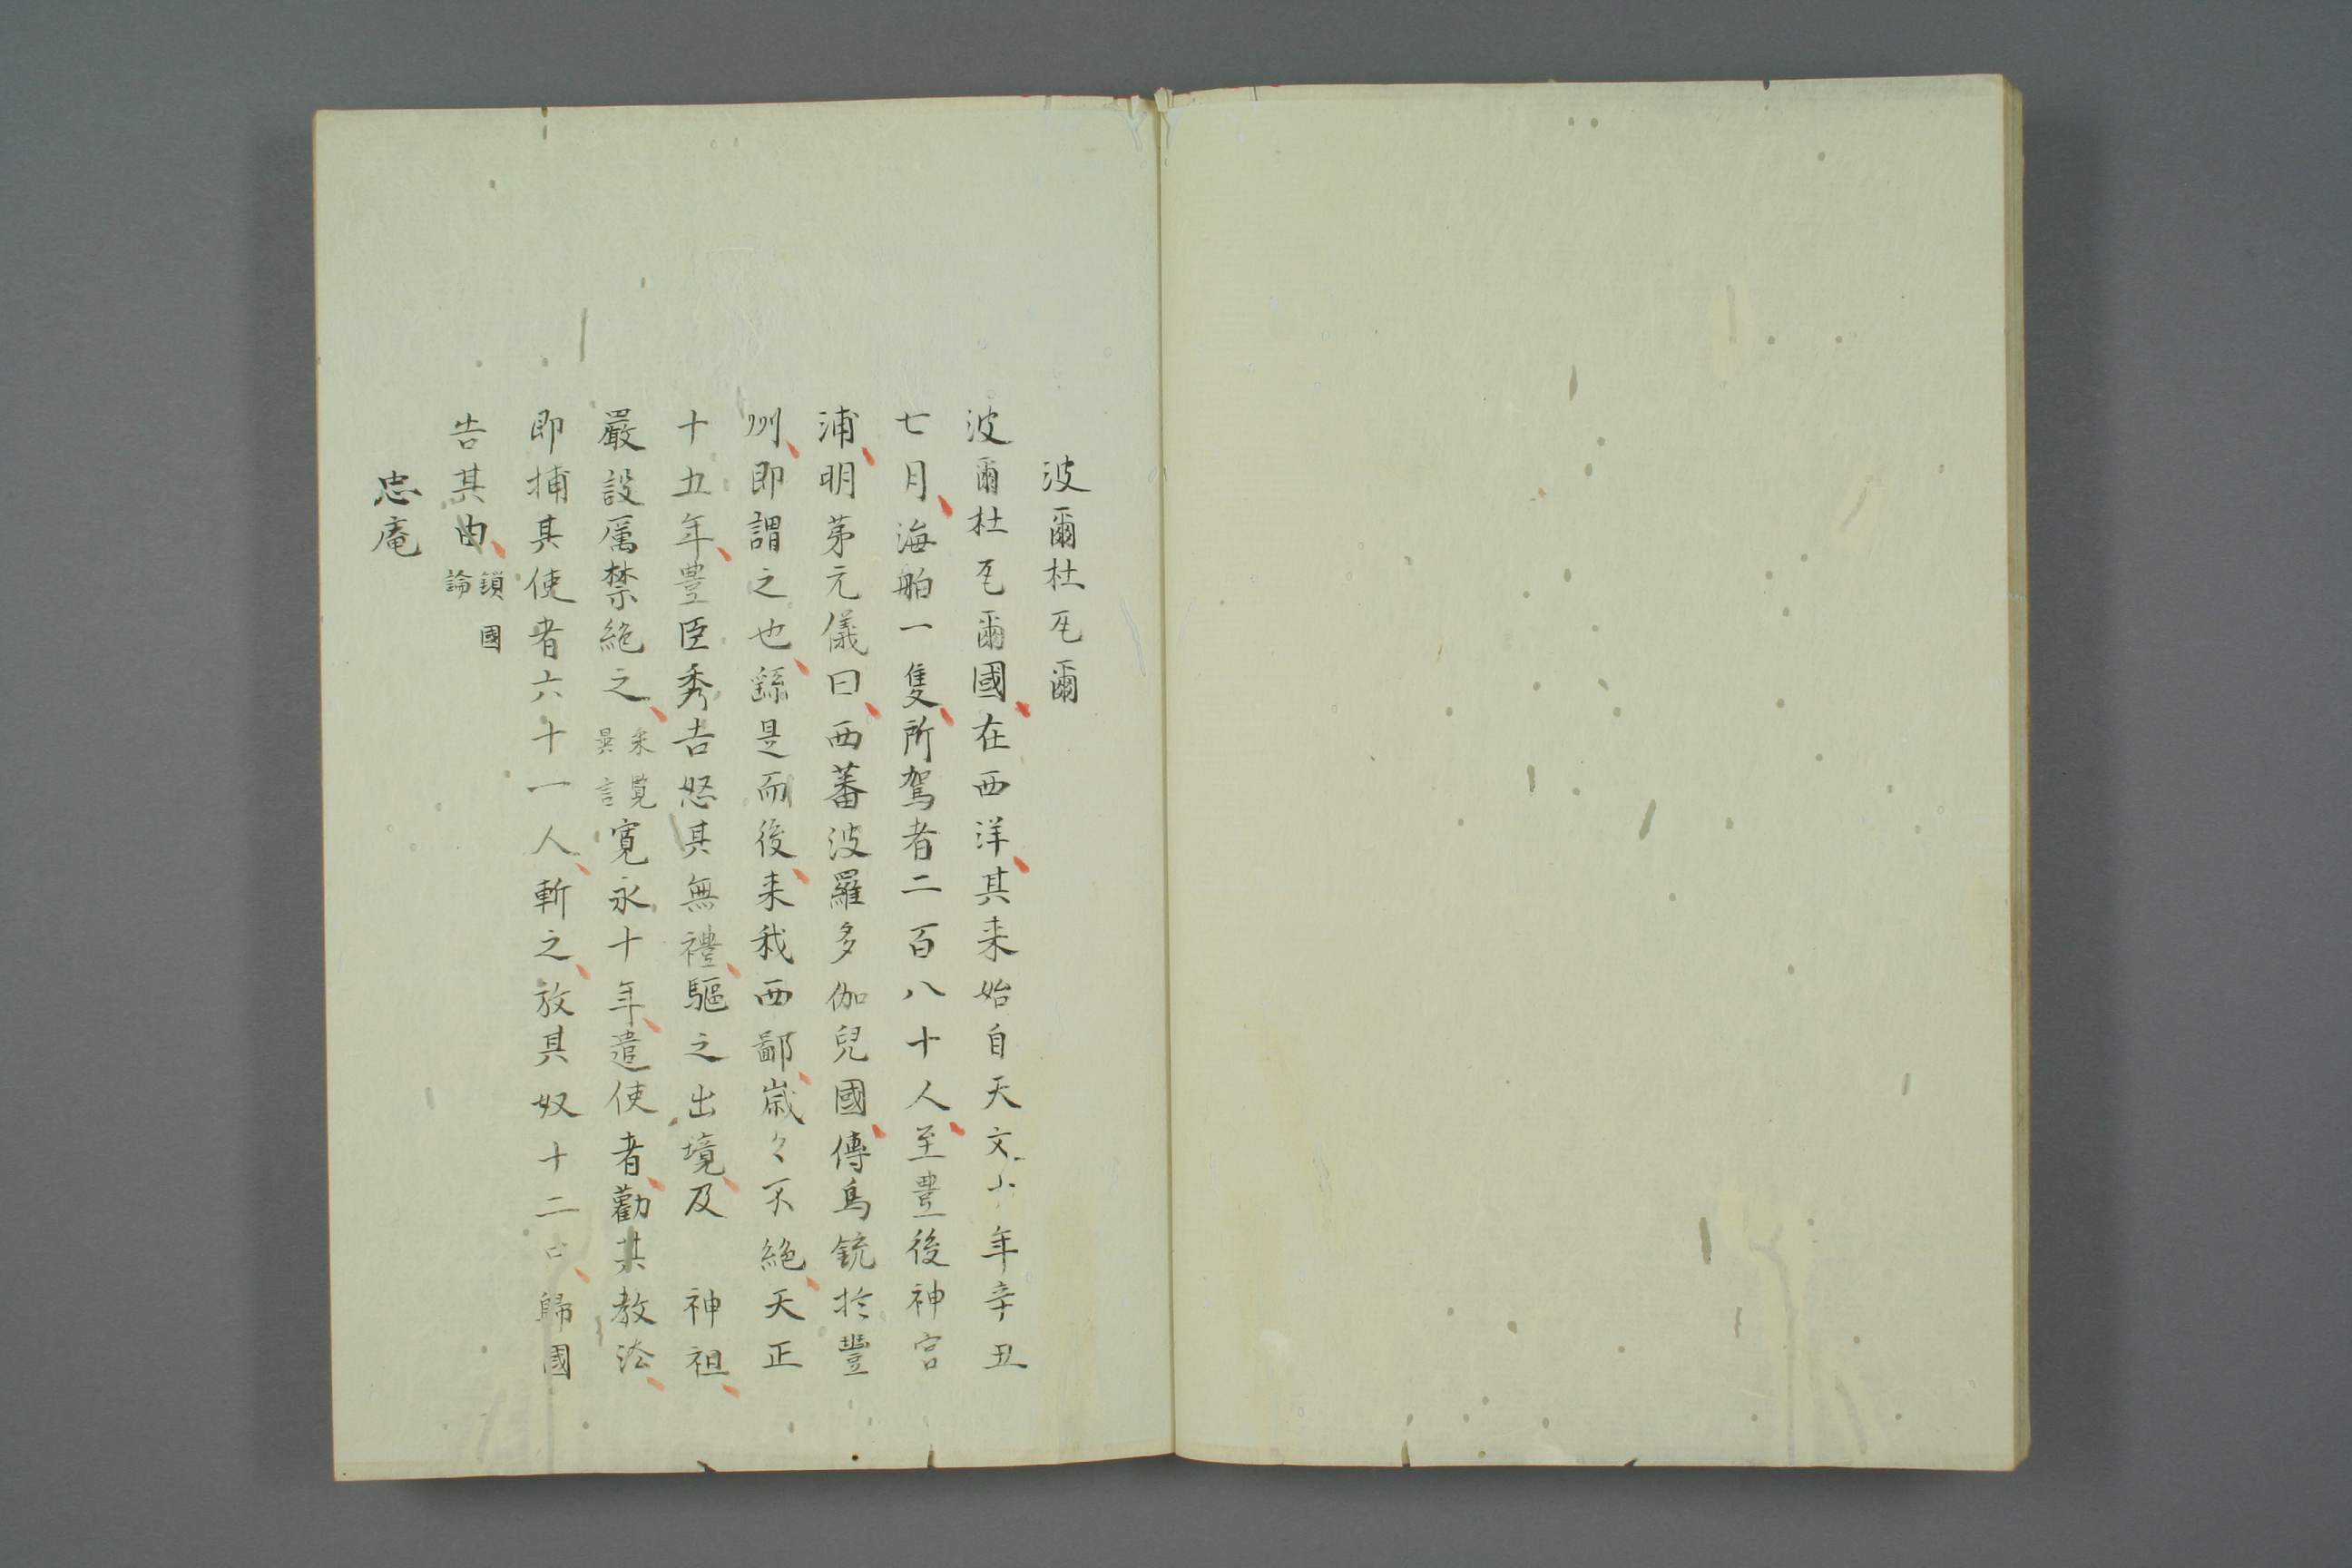 波爾杜瓦爾
波爾杜瓦爾國在西洋其来始自天文十年辛丑
七月海舶一隻所駕者二百八十人至豊後神宮
浦明茅元儀曰西蕃波羅多伽兒國傳鳥銃於豐
州即謂之也繇是而後来我西鄙歳々不絶天正
十五年豊臣秀吉怒其無禮驅之出境及　神祖
嚴設厲禁絶之采覧異言寛永十年遣使者勸其教法
即捕其使者六十一人斬之放其奴十二口歸國
告其由鎖國論
忠庵